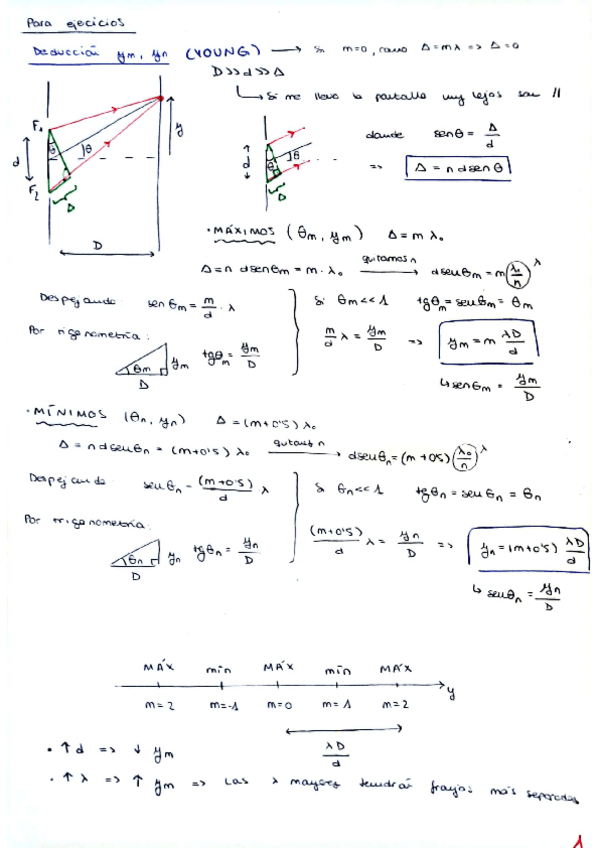 Para ejecicios
Deducción ym, yn (YOUNG) → Si m=0, como Δ=mλ => Δ=0
D>>d>>Δ
↳ Si me llevo la pantalla muy lejos son //
F1
F2
d
θ
θ
Δ
y
D
d
θ
θ
Δ
donde senθ = Δ/d
=> Δ = n d senθ
· MÁXIMOS (θm, ym) Δ = m λ₀
Δ = n d senθm = m · λ₀ quitamos n → d senθm = m (λ₀/n) λ
Despejando: sen θm = m/d · λ
Si θm << 1 tgθm = senθm = θm
Por trigonometría:
θm ym D tgθm = ym/D
m/d λ = ym/D => ym = m λD/d
↳ senθm = ym/D
· MÍNIMOS (θn, yn) Δ = (m+0'5) λ₀
Δ = n d senθn = (m+0'5) λ₀ quitamos n → d senθn = (m+0'5) (λ₀/n) λ
Despejando: senθn = (m+0'5)/d λ
Si θn << 1 tgθn = senθn = θn
Por trigonometría:
θn yn D tgθn = yn/D
(m+0'5)/d λ = yn/D => yn = (m+0'5) λD/d
↳ senθn = yn/D
MÁX mín MÁX mín MÁX
y
m=2 m=-1 m=0 m=1 m=2
λD/d
· ↑ d => ↓ ym
· ↑ λ => ↑ ym => Las λ mayores tendrán franjas más separadas
1